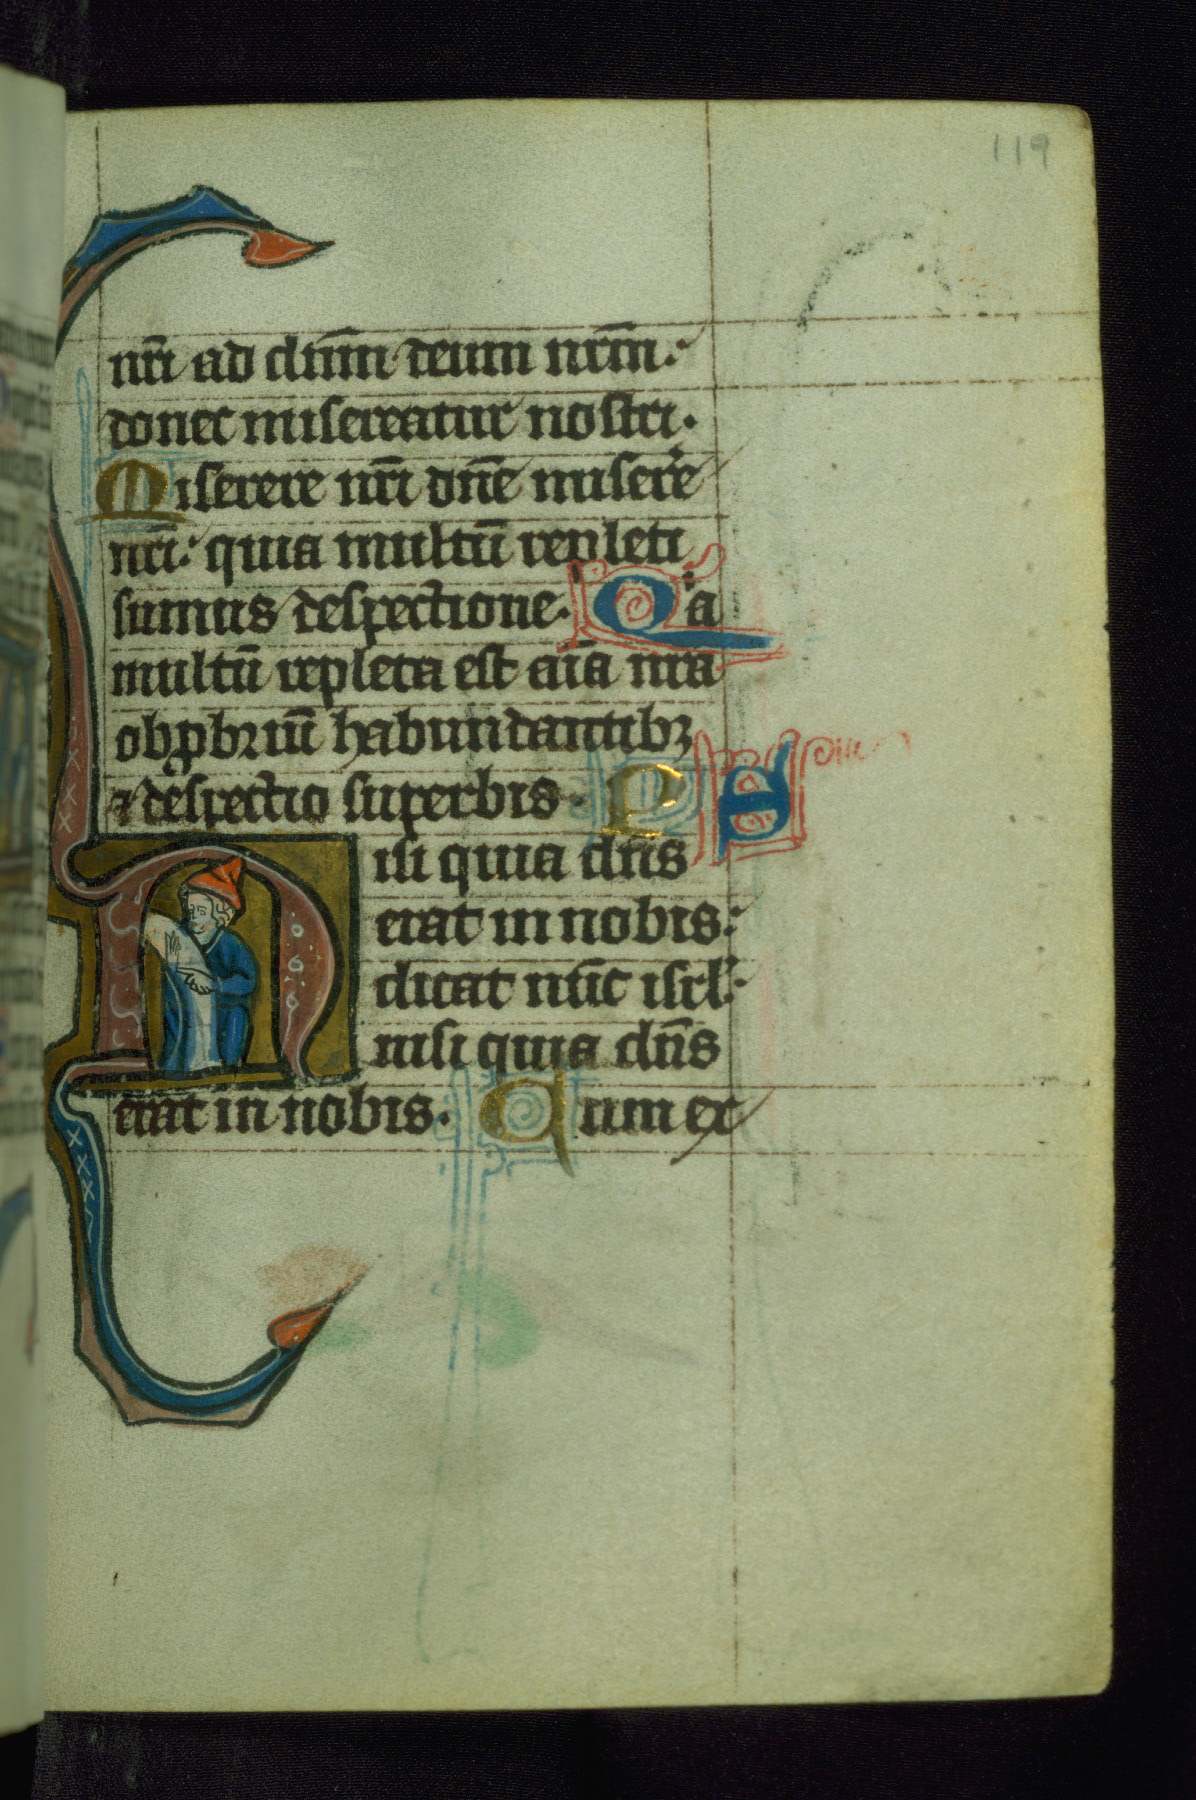 119
nr̄i ad dn̄m deum nr̄m.
donec misereatur nostri.
Miserere nr̄i dn̄e miserere
nr̄i: quia multū repleti
sumus despectione. Qia
multū repleta est aīa nr̄a
obprobriū habundantibꝫ
⁊ despectio superbis. P P
Nisi quia dn̄s
erat in nobis:
dicat nūc isrl̄:
nisi quia dn̄s
erat in nobis. Cum ex